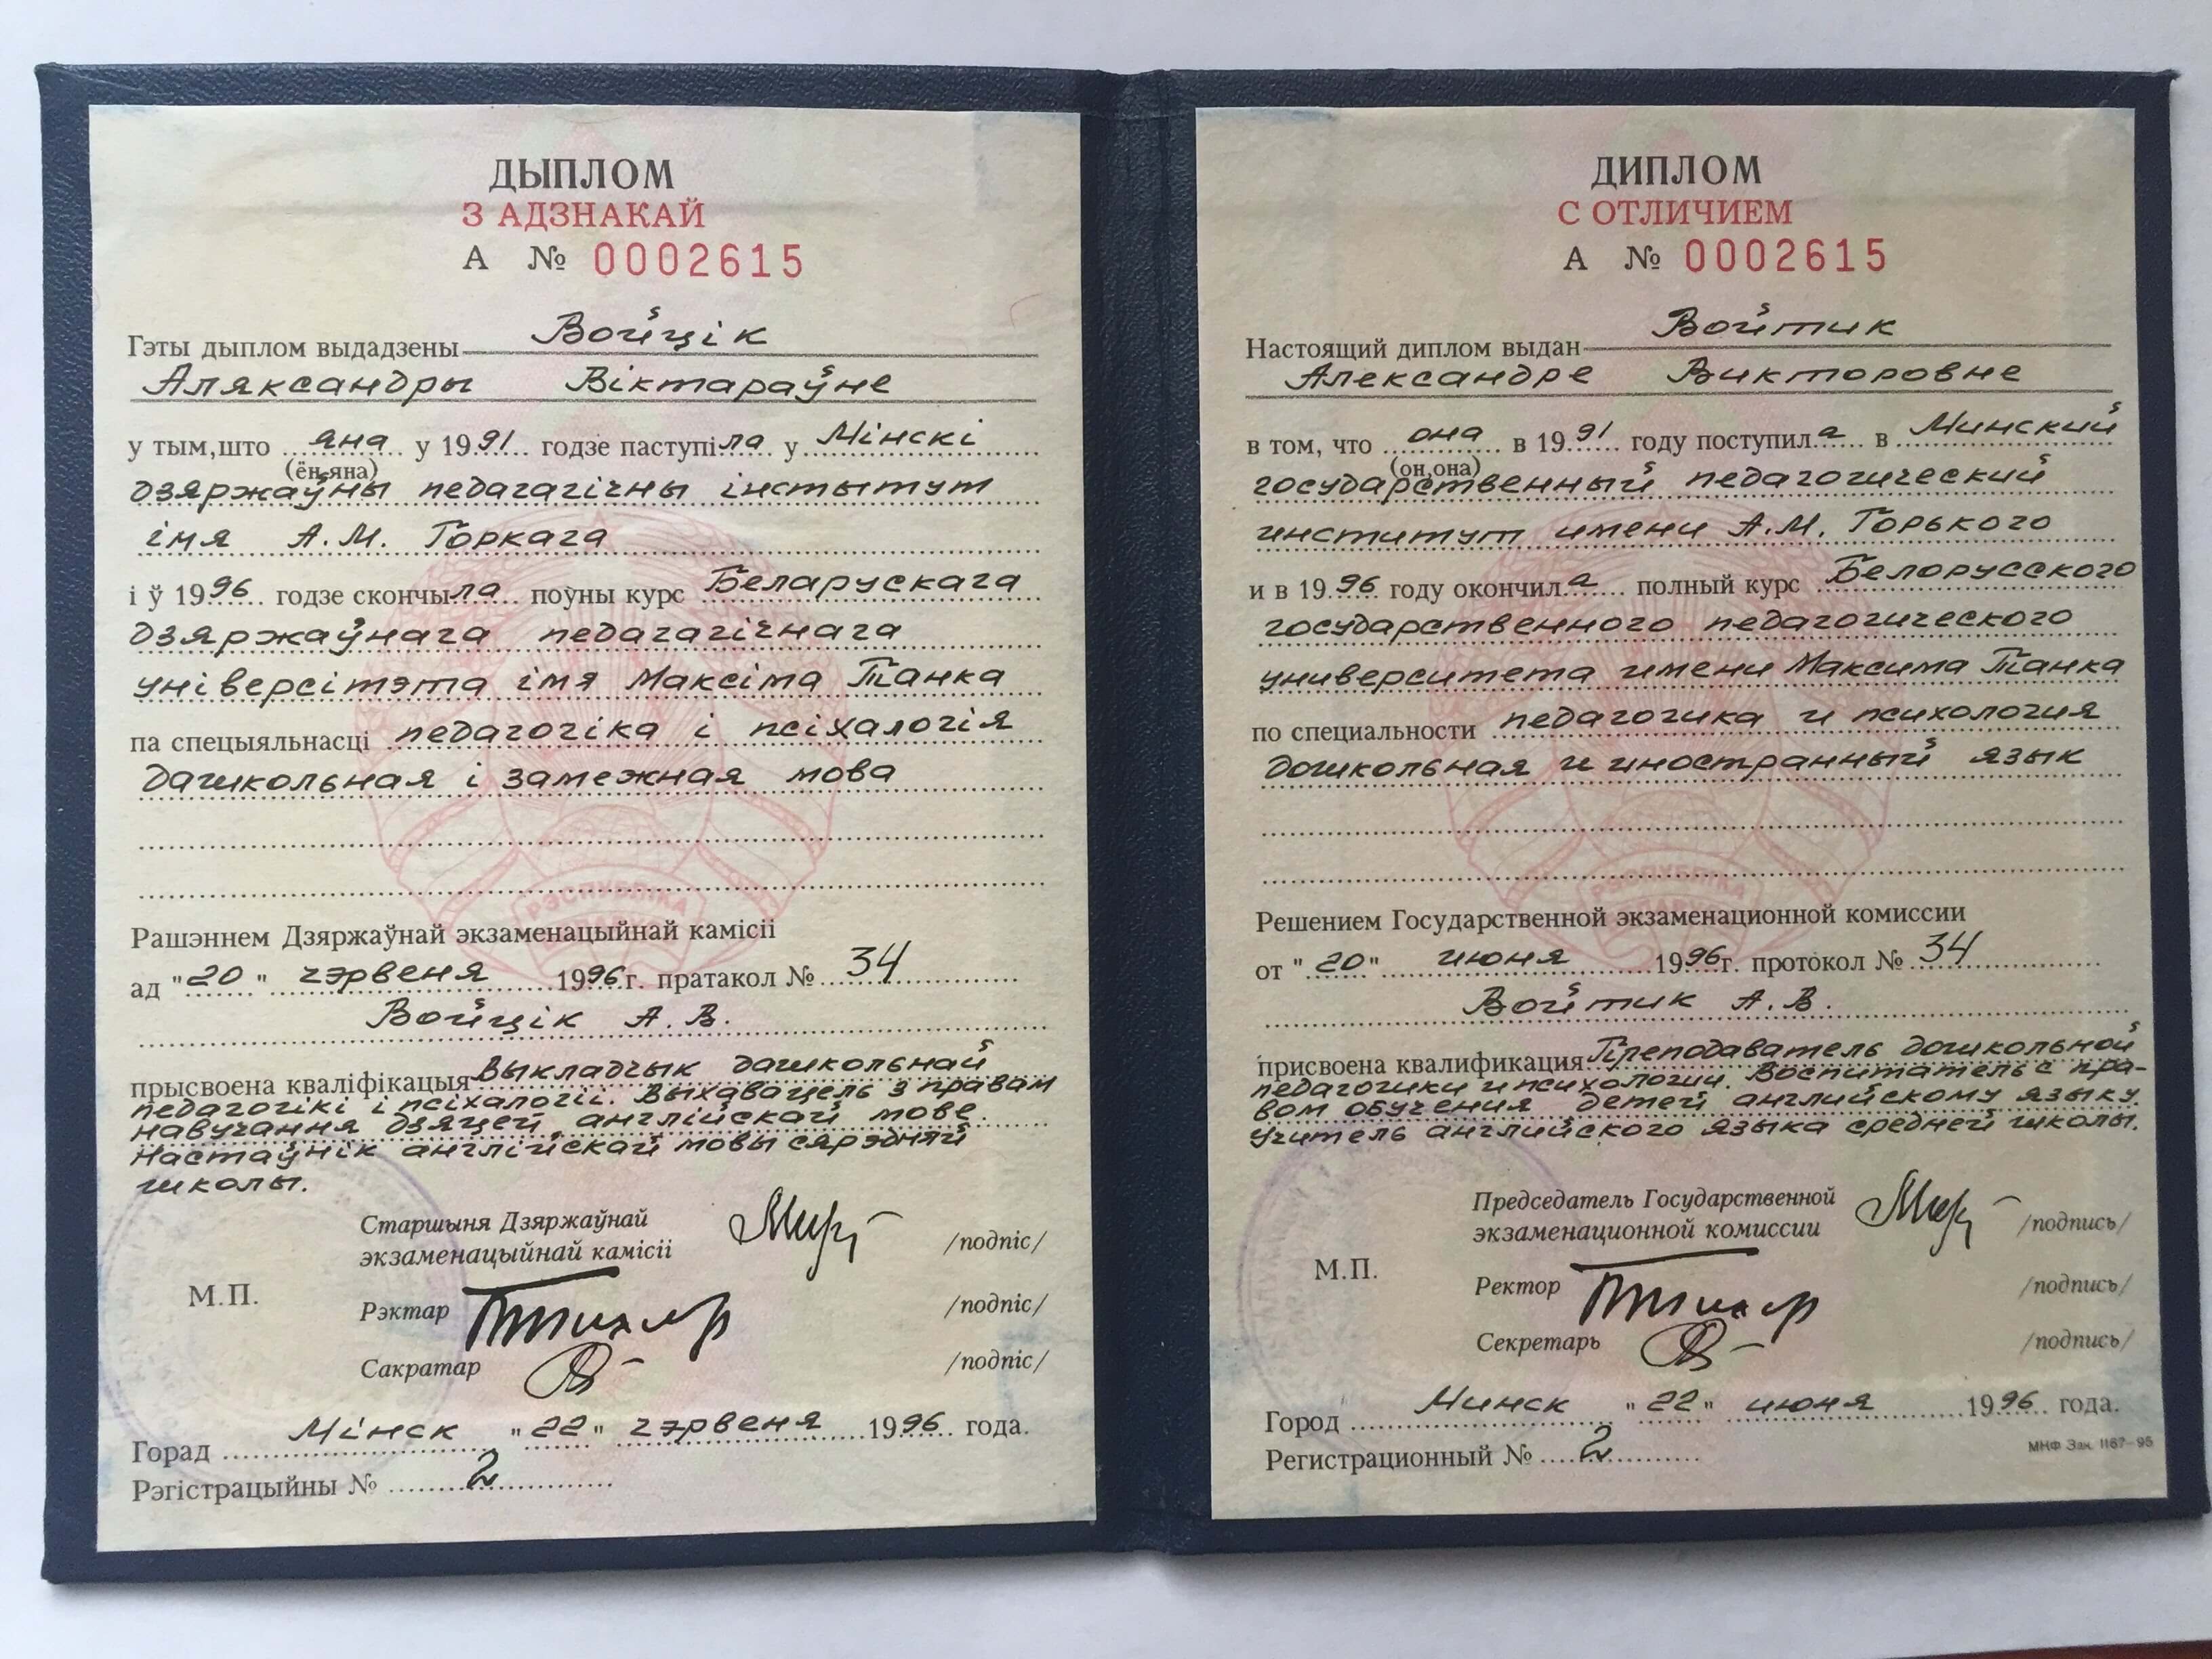 ДЫПЛОМ
З АДЗНАКАЙ
А № 0002615
Гэты дыплом выдадзены Войцік
Аляксандры Віктараўне
у тым,што яна у 1991 годзе паступіла у Мінскі
(ён,яна)
дзяржаўны педагагічны інстытут
імя А.М. Горкага
і ў 1996 годзе скончыла поўны курс Беларускага
дзяржаўнага педагагічнага
універсітэта імя Максіма Танка
па спецыяльнасці педагогіка і псіхалогія
дашкольная і замежная мова
РЭСПУБЛІКА
Рашэннем Дзяржаўнай экзаменацыйнай камісіі
ад "20" чэрвеня 1996г. пратакол № 34
Войцік А.В.
прысвоена кваліфікацыя Выкладчык дашкольнай
педагогікі і псіхалогіі. Выхавацель з правам
навучання дзяцей англійскай мове.
Настаўнік англійскай мовы сярэдняй
школы.
Старшыня Дзяржаўнай
экзаменацыйнай камісіі /подпіс/
М.П.
Рэктар /подпіс/
Сакратар /подпіс/
Горад Мінск "22" чэрвеня 1996 года.
Рэгістрацыйны № 2
ДИПЛОМ
С ОТЛИЧИЕМ
А № 0002615
Настоящий диплом выдан Войтик
Александре Викторовне
в том, что она в 1991 году поступила в Минский
(он,она)
государственный педагогический
институт имени А.М. Горького
и в 1996 году окончила полный курс Белорусского
государственного педагогического
университета имени Максима Танка
по специальности педагогика и психология
дошкольная и иностранный язык
РЭСПУБЛІКА
Решением Государственной экзаменационной комиссии
от "20" июня 1996г. протокол № 34
Войтик А.В.
присвоена квалификация Преподаватель дошкольной
педагогики и психологии. Воспитатель с пра-
вом обучения детей английскому языку.
Учитель английского языка средней школы.
Председатель Государственной
экзаменационной комиссии /подпись/
М.П.
Ректор /подпись/
Секретарь /подпись/
Город Минск "22" июня 1996 года.
МНФ Зак. 1167-95
Регистрационный № 2